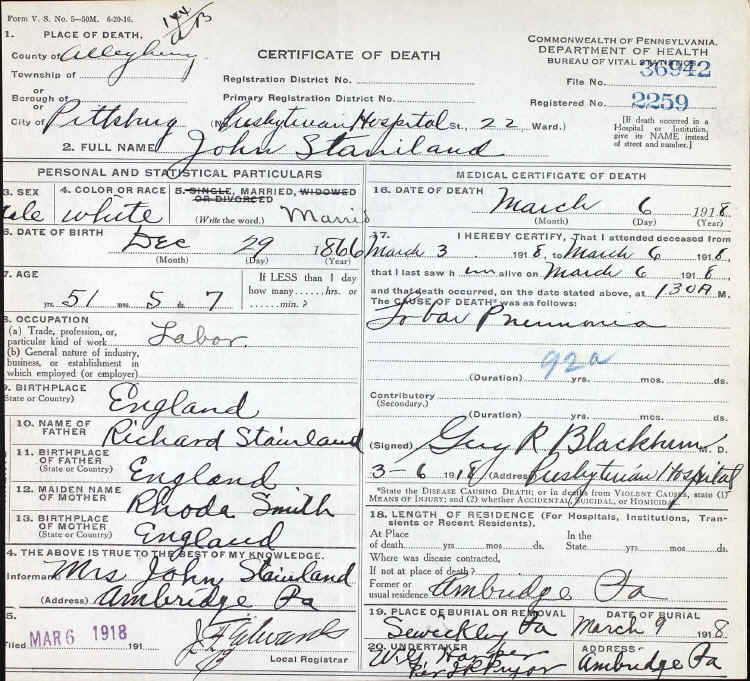 Form V. S. No. 5—50M. 6-20-16.
1. PLACE OF DEATH.
County of Allegheny
Township of
or
Borough of
or
City of Pittsburg
CERTIFICATE OF DEATH
Registration District No.
Primary Registration District No.
(No. Presbyterian Hospital St., 22 Ward.)
COMMONWEALTH OF PENNSYLVANIA.
DEPARTMENT OF HEALTH
BUREAU OF VITAL STATISTICS
File No. 36942
Registered No. 2259
[If death occurred in a
Hospital or Institution,
give its NAME instead
of street and number.]
2. FULL NAME John Staniland
PERSONAL AND STATISTICAL PARTICULARS
3. SEX
ale
4. COLOR OR RACE
white
5. SINGLE, MARRIED, WIDOWED
OR DIVORCED
(Write the word.) Marrid
6. DATE OF BIRTH
Dec 29 1866
(Month) (Day) (Year)
7. AGE
51 yrs. 5 mos. 7 ds.
If LESS than 1 day
how many......hrs. or
......min.?
8. OCCUPATION
(a) Trade, profession, or
particular kind of work Labor.
(b) General nature of industry,
business, or establishment in
which employed (or employer)
9. BIRTHPLACE
State or Country) England
10. NAME OF
FATHER Richard Stainland
11. BIRTHPLACE
OF FATHER
(State or Country) England
12. MAIDEN NAME
OF MOTHER Rhoda Smith
13. BIRTHPLACE
OF MOTHER
(State or Country) England
4. THE ABOVE IS TRUE TO THE BEST OF MY KNOWLEDGE.
Informant Mrs John Stainland
(Address) Ambridge Pa
5.
Filed MAR 6 1918 191
Local Registrar
MEDICAL CERTIFICATE OF DEATH
16. DATE OF DEATH
March 6 1918
(Month) (Day) (Year)
17. I HEREBY CERTIFY, That I attended deceased from
March 3 1918, to March 6 1918,
that I last saw h im alive on March 6 1918,
and that death occurred, on the date stated above, at 130A M.
The CAUSE OF DEATH* was as follows:
Lobar Pneumonia
92a
(Duration) yrs. mos. ds.
Contributory
(Secondary.)
(Duration) yrs. mos. ds.
(Signed) Guy R. Blackburn M. D.
3-6 1918 (Address) Presbyterian Hospital
*State the DISEASE CAUSING DEATH; or in deaths from VIOLENT CAUSES, state (1)
MEANS OF INJURY; and (2) whether ACCIDENTAL, SUICIDAL, or HOMICIDAL.
18. LENGTH OF RESIDENCE (For Hospitals, Institutions, Tran-
sients or Recent Residents).
At Place
of death......yrs. mos. ds.
In the
State......yrs. mos. ds.
Where was disease contracted,
If not at place of death?
Former or
usual residence Ambridge Pa
19. PLACE OF BURIAL OR REMOVAL
Sewickley Pa
DATE OF BURIAL
March 9 1918
20. UNDERTAKER
Harper
Per J R Pryor
ADDRESS
Ambridge Pa